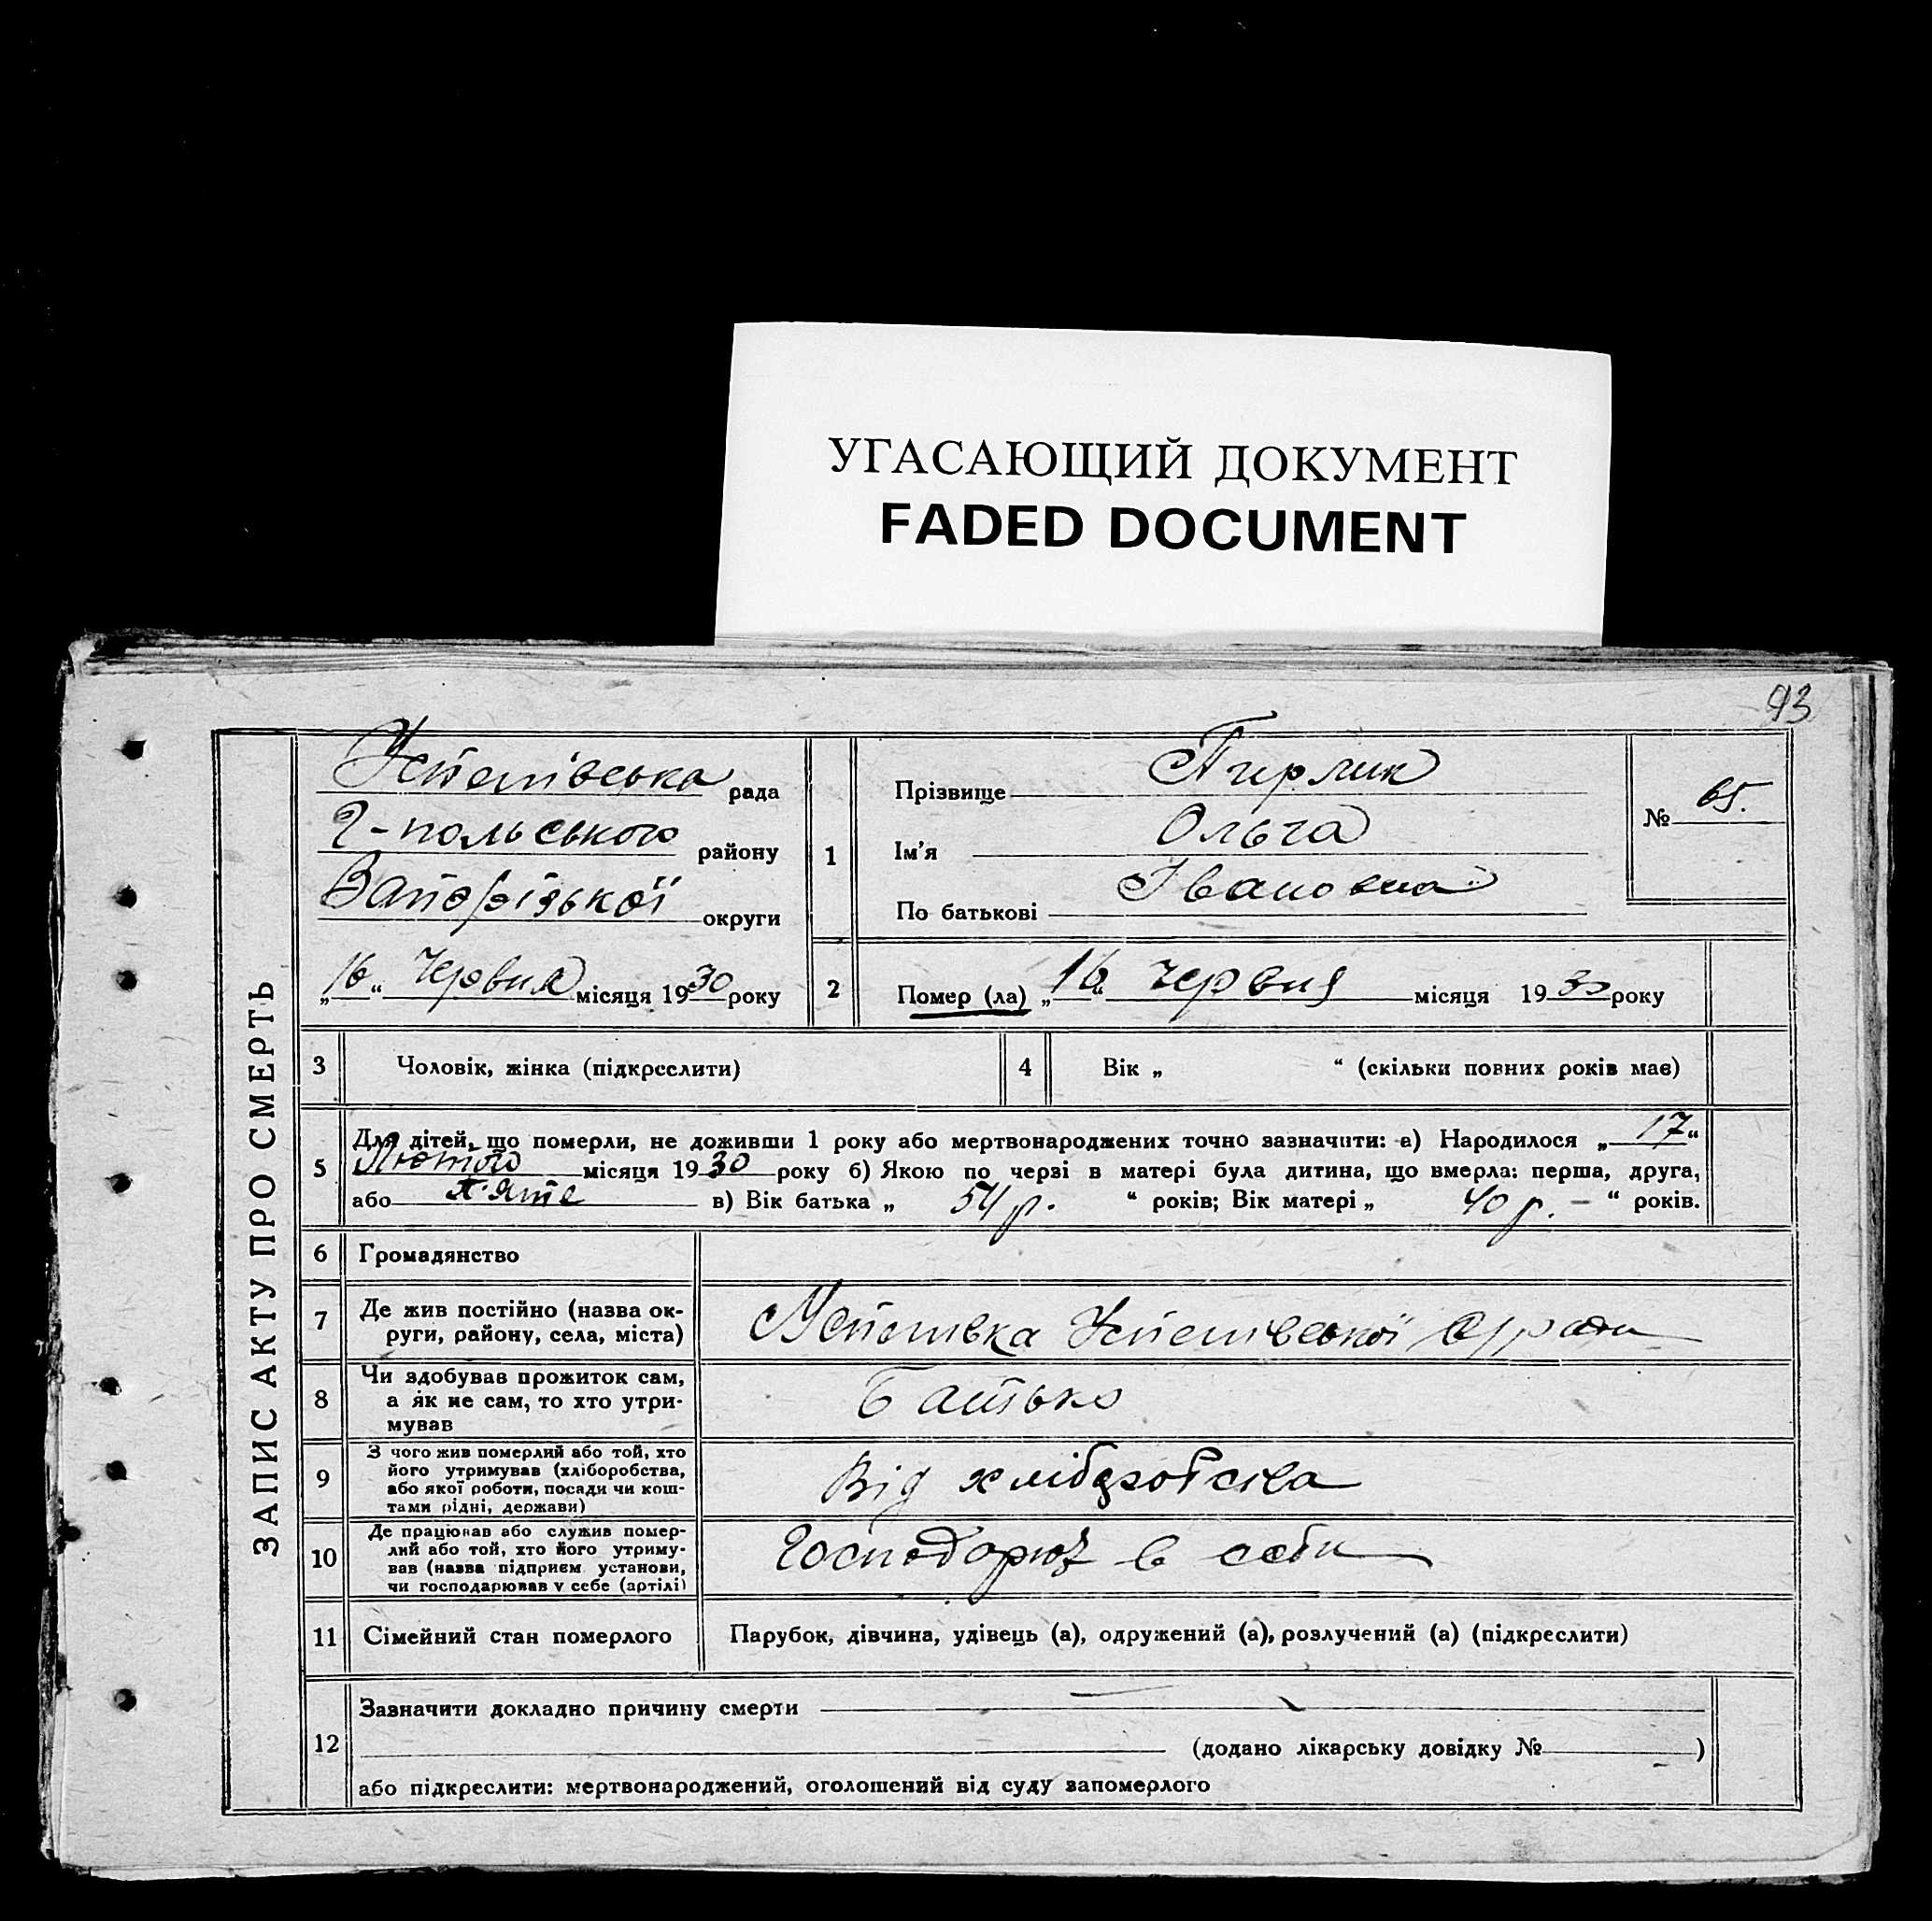 УГАСАЮЩИЙ ДОКУМЕНТ
FADED DOCUMENT
93
ЗАПИС АКТУ ПРО СМЕРТЬ
Успенівська рада
Г-польського району
Запорізької округи
„16“ Червня місяця 1930 року
1
Прізвище Пирлик
Ім'я Ольга
По батькові Івановна
№ 65.
2
Помер (ла) „16“ червня місяця 1930 року
3 Чоловік, жінка (підкреслити)
4 Вік „ “ (скільки повних років має)
5 Для дітей, що померли, не доживши 1 року або мертвонароджених точно зазначити: а) Народилося „17“
Лютого місяця 1930 року б) Якою по черзі в матері була дитина, що вмерла: перша, друга,
або п'яте в) Вік батька „ 54 р. “ років; Вік матері „ 40 р. – “ років.
6 Громадянство
7 Де жив постійно (назва ок-
руги, району, села, міста)
Успенівка Успенівської с/ради
8 Чи здобував прожиток сам,
а як не сам, то хто утри-
мував
Батько
9 З чого жив померлий або той, хто
його утримував (хліборобства,
або якої роботи, посади чи кош-
тами рідні, держави)
Від хліборобства
10 Де працював або служив помер-
лий або той, хто його утриму-
вав (назва підприєм установи,
чи господарював у себе (артілі)
Господарює в себи
11 Сімейний стан померлого
Парубок, дівчина, удівець (а), одружений (а), розлучений (а) (підкреслити)
12 Зазначити докладно причину смерти
(додано лікарську довідку № )
або підкреслити: мертвонароджений, оголошений від суду запомерлого